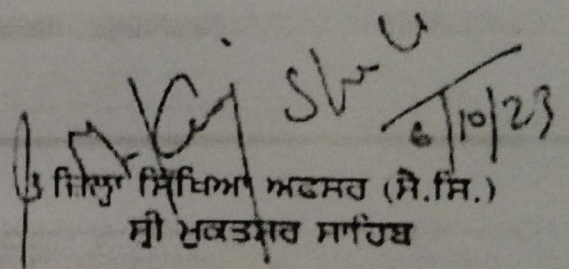 6/10/23
ਜ਼ਿਲ੍ਹਾ ਸਿੱਖਿਆ ਅਫਸਰ (ਸੈ.ਸਿ.)
ਸ੍ਰੀ ਮੁਕਤਸਰ ਸਾਹਿਬ